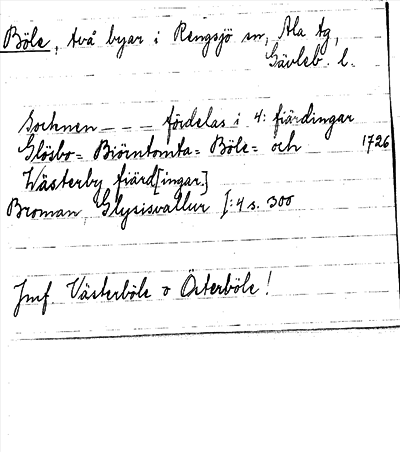 Böle, två byar i Rengsjö sn, Ala tg,
Gävleb. l.
Sochnen - - - fördelas i 4: fiärdingar
Glösbo= Biörntomta= Böle= och 1726
Wästerby fiärd[ingar.]
Broman, Glysisvallur I:4 s. 300
Jmf. Västerböle o Österböle!